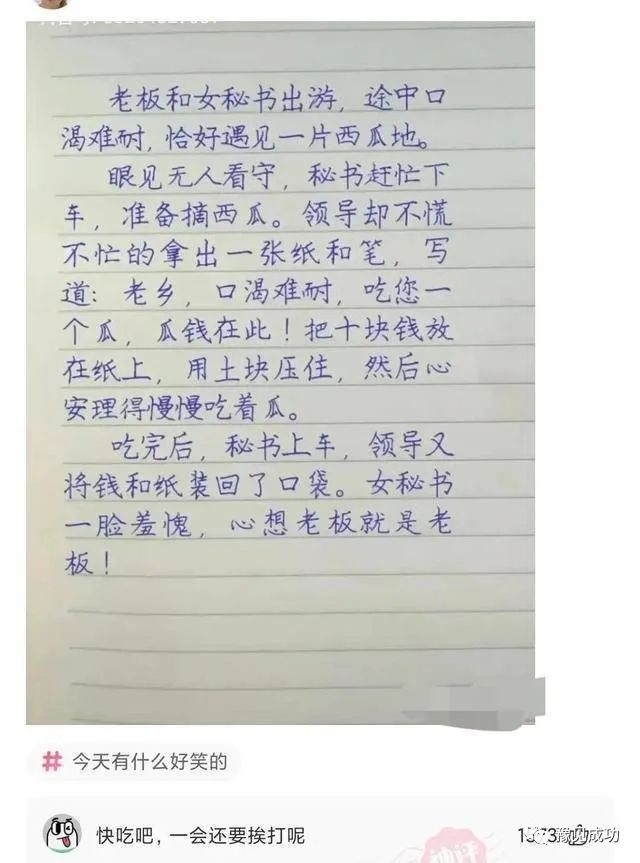 老板和女秘书出游，途中口
渴难耐，恰好遇见一片西瓜地。
眼见无人看守，秘书赶忙下
车，准备摘西瓜。领导却不慌
不忙的拿出一张纸和笔，写
道：老乡，口渴难耐，吃您一
个瓜，瓜钱在此！把十块钱放
在纸上，用土块压住，然后心
安理得慢慢吃着瓜。
吃完后，秘书上车，领导又
将钱和纸装回了口袋。女秘书
一脸羞愧，心想老板就是老
板！
# 今天有什么好笑的
快吃吧，一会还要挨打呢
豫见成功
神评